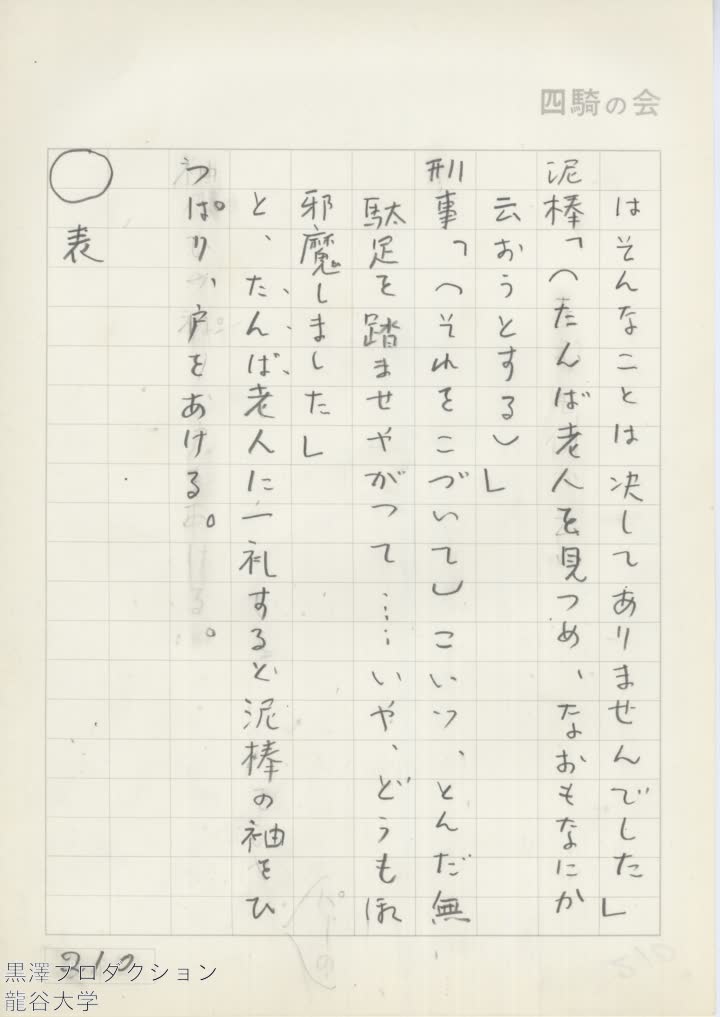 四騎の会
はそんなことは決してありませんでした」
泥棒「(たんば老人を見つめ、なおもなにか
云おうとする)」
刑事「(それをこづいて)こいつ、とんだ無
駄足を踏ませやがつて……いや、どうもお
邪魔しました」
と、たんば老人に一礼すると泥棒の袖をひ
つぱり、戸をあける。
○
表
210
黒澤プロダクション
龍谷大学